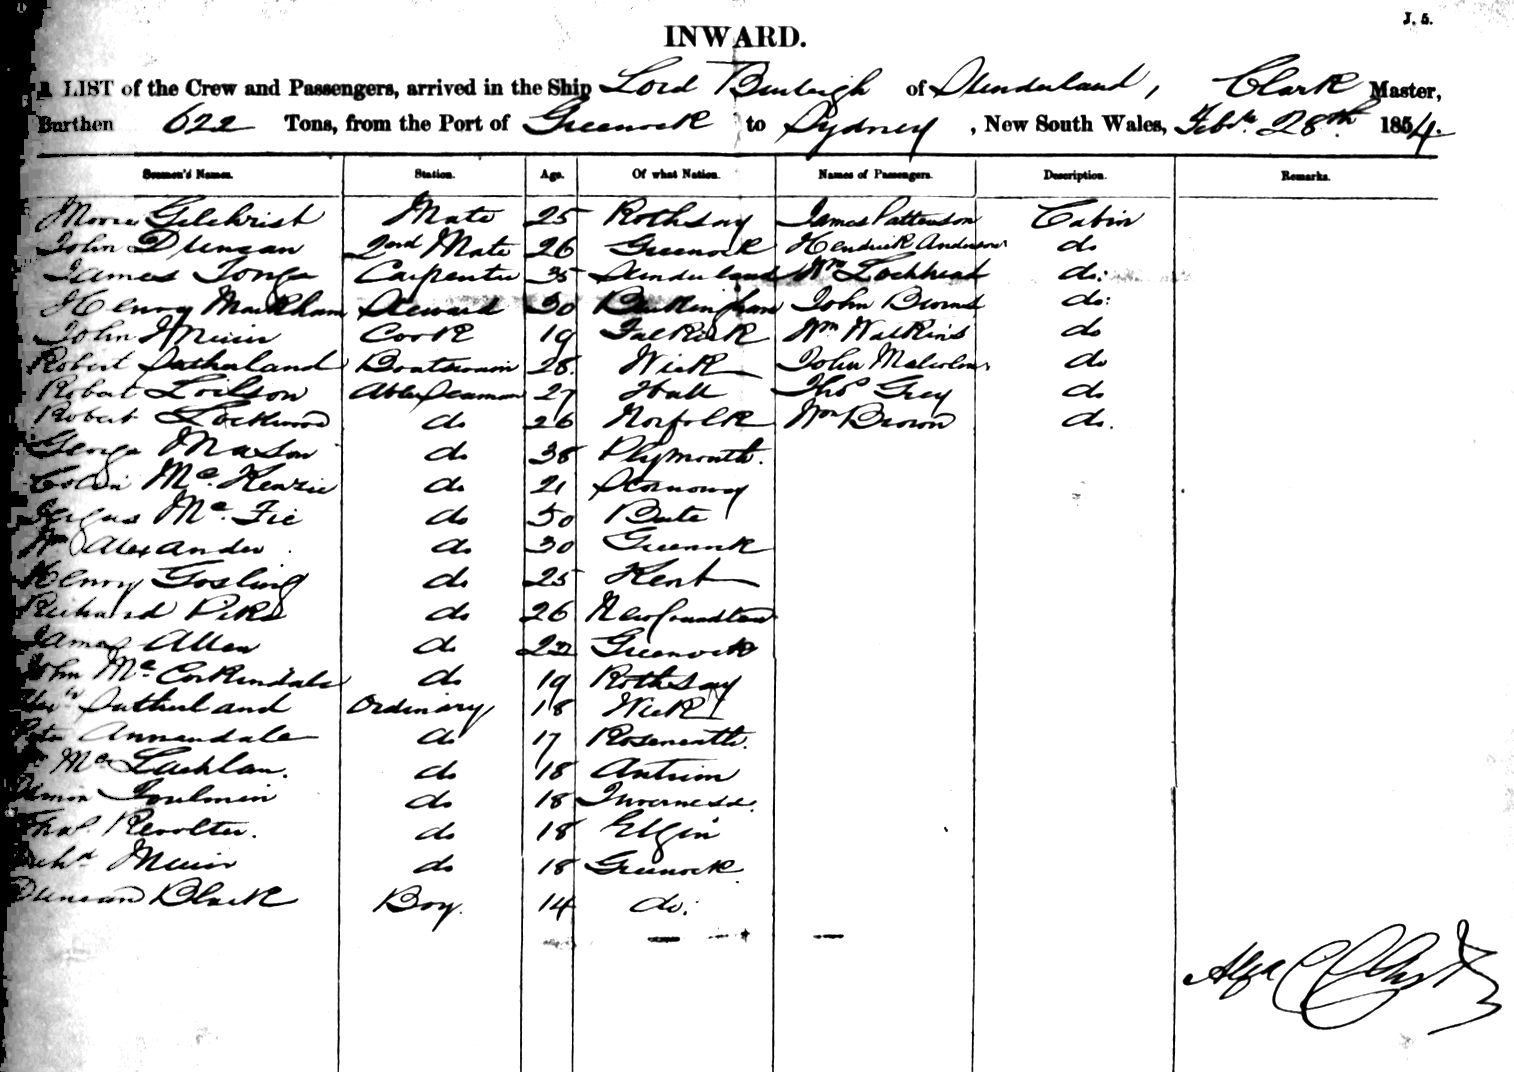 J. 5.
INWARD.
A LIST of the Crew and Passengers, arrived in the Ship Lord Burleigh of Sunderland, Clark Master,
Burthen 622 Tons, from the Port of Greenock to Sydney, New South Wales, Feby. 28th 1854.
Seamen's Names. Station. Age. Of what Nation. Names of Passengers. Description. Remarks.
Moore Gilchrist Mate 25 Rothsay James Pattenson Cabin
John Duncan 2nd Mate 26 Greenock Hendrick Anderson do
James Tonge Carpenter 35 Sunderland Wm Lochhead do:
Henry Markham Steward 30 Buckingham John Brown do:
John Muir Cook 19 Falkirk Wm Watkins do
Robert Sutherland Boatswain 28. Wick John Malcolm do
Robert Able Seaman 27 Hull Thos Grey do
Robert Lockwood do 26 Norfolk Wm Brown do.
George Mason do 38 Plymouth.
Colin Mc. Kenzie do 21 Stornoway
Fergus Mc. Fie do 50 Bute
Wm Alexander do 30 Greenock
Henry Gosling do 25 Kent
Richard Pike do 26 Newfoundland
James Allen do 22 Greenock
John Mc Corkindale do 19 Rothsay
Sutherland Ordinary 18 Wick
Peter Annandale do 17 Roseneath.
Mc Lachlan. do 18 Antrim
Simon Toulmin do 18 Inverness.
Thos. do 18 Elgin
Archd Muir do 18 Greenock
Duncan Black Boy. 14 do.